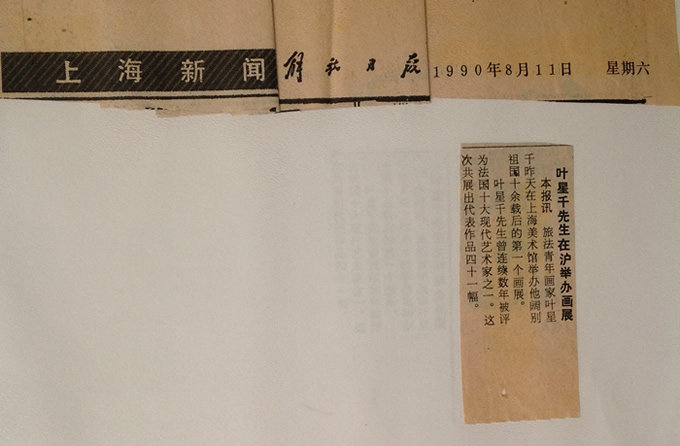 上海新闻
解放日报
1990年8月11日 星期六
叶星千先生在沪举办画展
本报讯 旅法青年画家叶星
千昨天在上海美术馆举办他阔别
祖国十余载后的第一个画展。
叶星千先生曾连续数年被评
为法国十大现代艺术家之一。这
次共展出代表作品四十一幅。